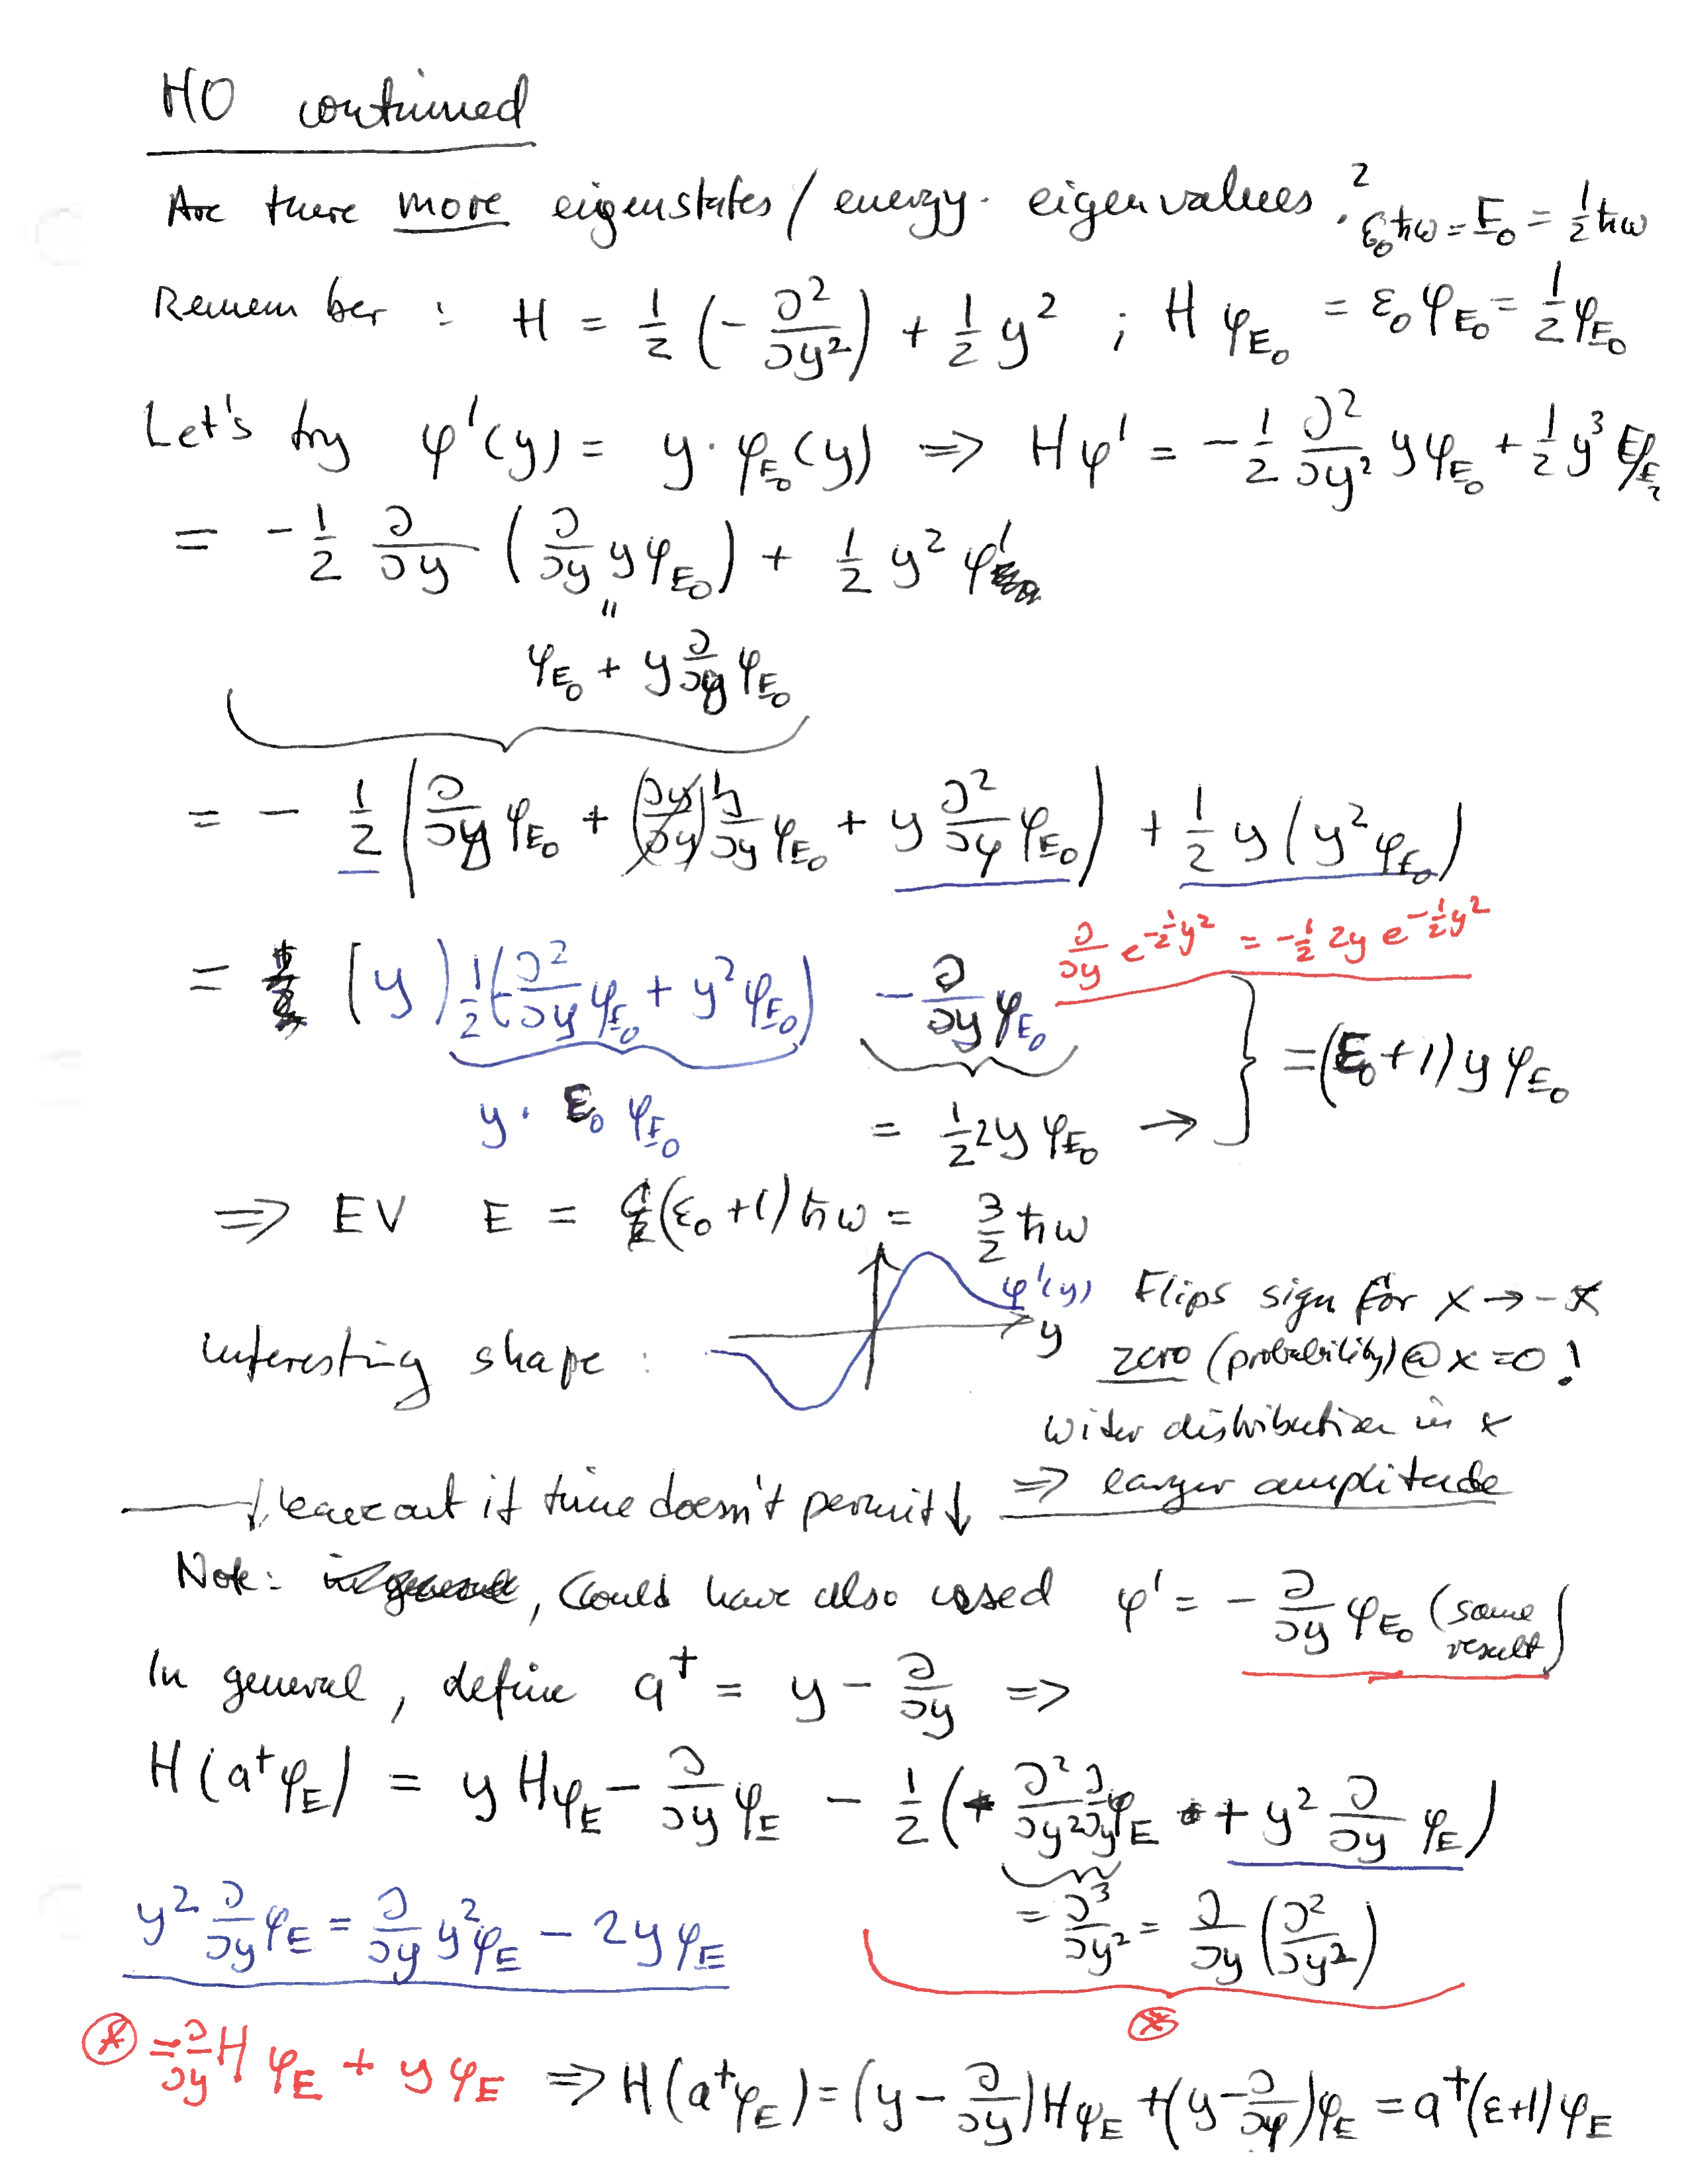 HO continued
Are there more eigenstates / energy. eigenvalues ? ε₀ħω = E₀ = ½ħω
Remember : H = ½ (-∂²/∂y²) + ½ y² ; H φ_E₀ = ε₀ φ_E₀ = ½ φ_E₀
Let's try φ'(y) = y · φ_E₀(y) ⇒ Hφ' = -½ ∂²/∂y² y φ_E₀ + ½ y³ φ_E₀
= -½ ∂/∂y (∂/∂y y φ_E₀) + ½ y² φ'
"
φ_E₀ + y ∂/∂y φ_E₀
= - ½ (∂/∂y φ_E₀ + (∂y/∂y)¹ ∂/∂y φ_E₀ + y ∂²/∂y φ_E₀) + ½ y (y² φ_E₀)
∂/∂y e^(-½y²) = -½ 2y e^(-½y²)
= (y) ½ (-∂²/∂y φ_E₀ + y² φ_E₀) - ∂/∂y φ_E₀ } = (ε₀ + 1) y φ_E₀
y · ε₀ φ_E₀ = ½ 2y φ_E₀ →
⇒ EV E = (ε₀ + 1) ħω = 3/2 ħω
Interesting shape :
φ'(y)
y
Flips sign for x → -x
zero (probability) @ x = 0 !
Wider distribution in x
⇒ larger amplitude
↓ leave out if time doesn't permit ↓
Note: in general, Could have also used φ' = - ∂/∂y φ_E₀ (same result)
In general, define a† = y - ∂/∂y ⇒
H (a†φ_E) = y Hφ_E - ∂/∂y φ_E - ½ (- ∂²/∂y² ∂/∂y φ_E + y² ∂/∂y φ_E)
= ∂³/∂y² = ∂/∂y (∂²/∂y²)
y² ∂/∂y φ_E = ∂/∂y y² φ_E - 2y φ_E
⊛
⊛ = ∂/∂y H φ_E + y φ_E ⇒ H (a†φ_E) = (y - ∂/∂y) Hφ_E + (y - ∂/∂y) φ_E = a†(ε+1) φ_E